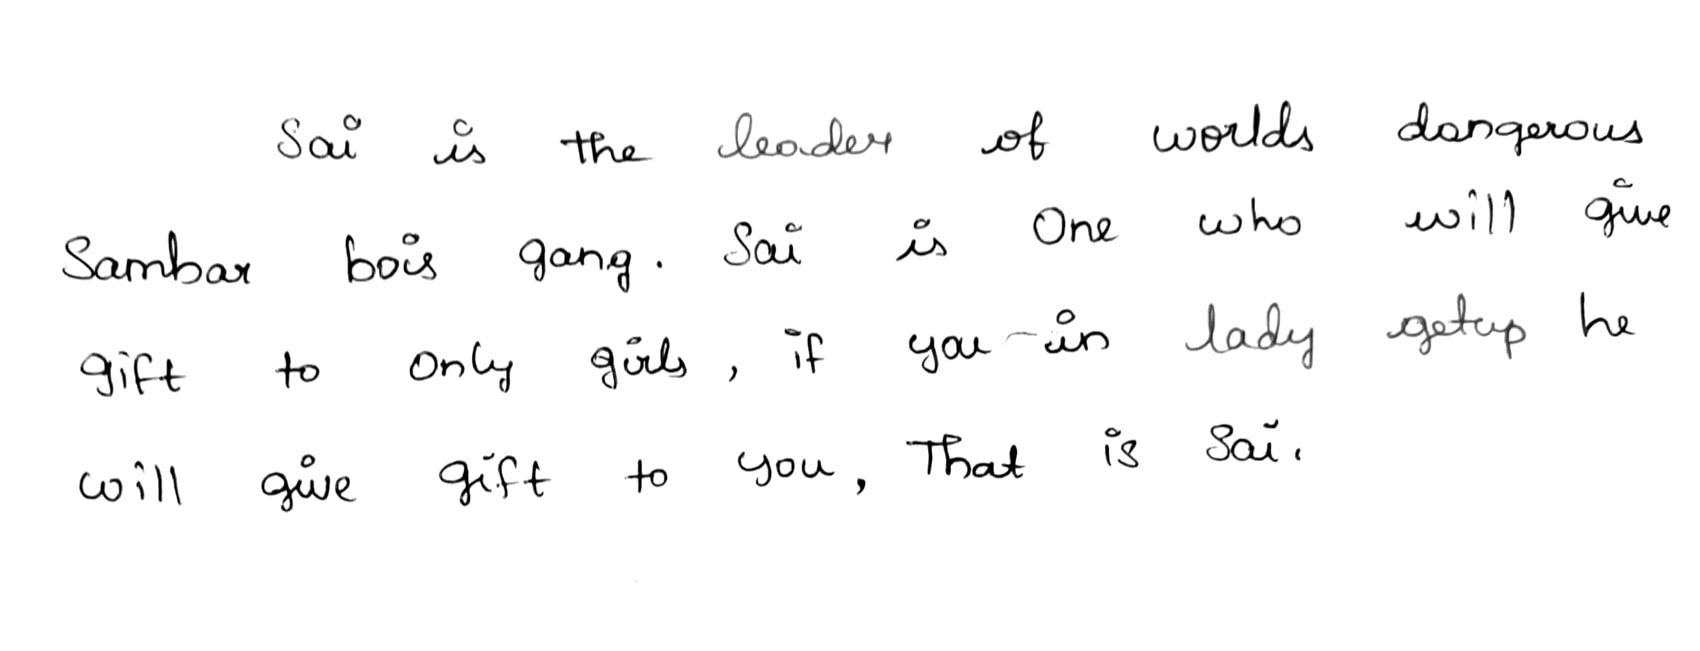 Sai is the leader of worlds dangerous
Sambar bois gang. Sai is One who will give
gift to only girls, if you in lady getup he
will give gift to you, That is Sai.